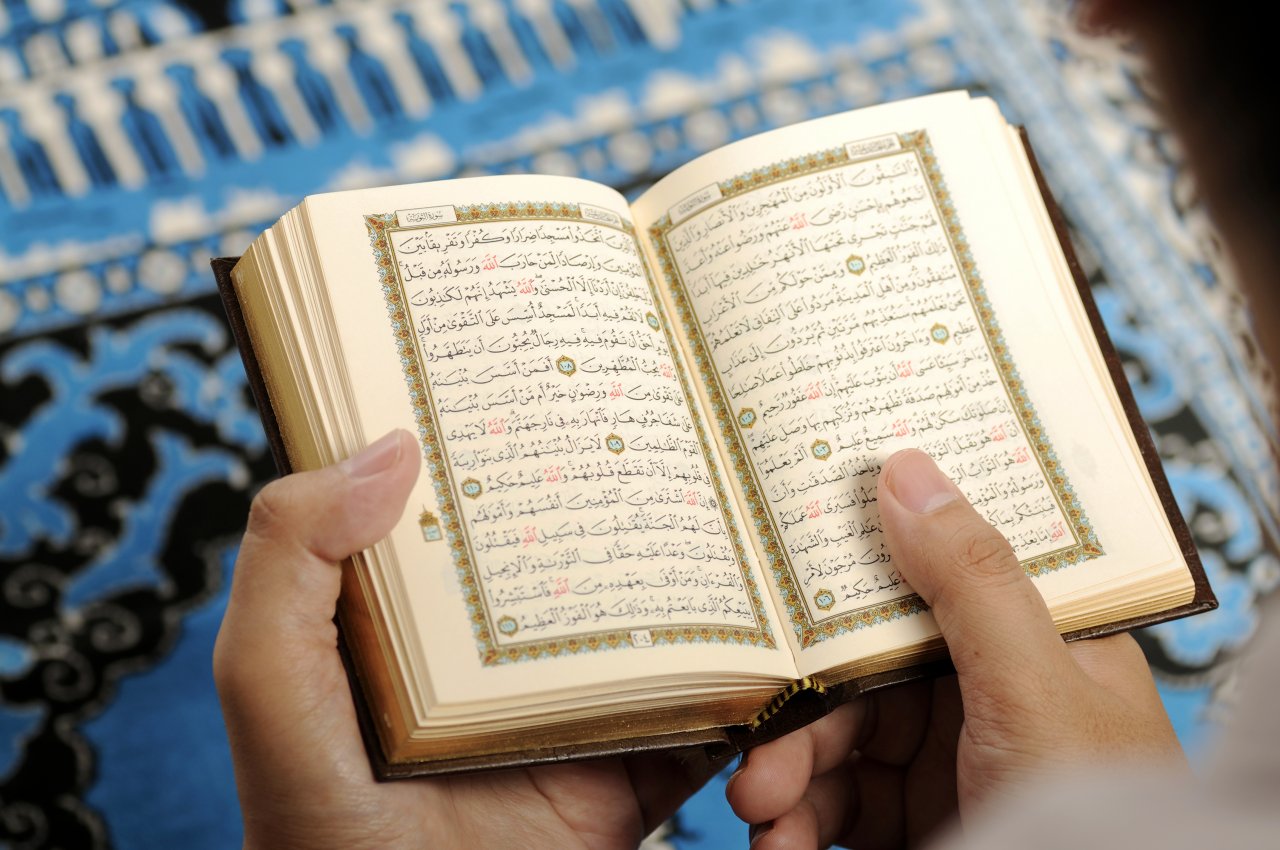 سُورَةُ التَّوْبَةِ
وَٱلسَّٰبِقُونَ ٱلْأَوَّلُونَ مِنَ ٱلْمُهَٰجِرِينَ وَٱلْأَنصَارِ وَٱلَّذِينَ
ٱتَّبَعُوهُم بِإِحْسَٰنٍ رَّضِىَ ٱللَّهُ عَنْهُمْ وَرَضُوا۟ عَنْهُ وَأَعَدَّ
لَهُمْ جَنَّٰتٍ تَجْرِى تَحْتَهَا ٱلْأَنْهَٰرُ خَٰلِدِينَ فِيهَآ أَبَدًا
ذَٰلِكَ ٱلْفَوْزُ ٱلْعَظِيمُ ١٠٠ وَمِمَّنْ حَوْلَكُم مِّنَ ٱلْأَعْرَابِ
مُنَٰفِقُونَ وَمِنْ أَهْلِ ٱلْمَدِينَةِ مَرَدُوا۟ عَلَى ٱلنِّفَاقِ لَا تَعْلَمُهُمْ
نَحْنُ نَعْلَمُهُمْ سَنُعَذِّبُهُم مَّرَّتَيْنِ ثُمَّ يُرَدُّونَ إِلَىٰ عَذَابٍ
عَظِيمٍ ١٠١ وَءَاخَرُونَ ٱعْتَرَفُوا۟ بِذُنُوبِهِمْ خَلَطُوا۟ عَمَلًا صَٰلِحًا
وَءَاخَرَ سَيِّئًا عَسَى ٱللَّهُ أَن يَتُوبَ عَلَيْهِمْ إِنَّ ٱللَّهَ غَفُورٌ رَّحِيمٌ ١٠٢
خُذْ مِنْ أَمْوَٰلِهِمْ صَدَقَةً تُطَهِّرُهُمْ وَتُزَكِّيهِم بِهَا وَصَلِّ عَلَيْهِمْ
إِنَّ صَلَوٰتَكَ سَكَنٌ لَّهُمْ وَٱللَّهُ سَمِيعٌ عَلِيمٌ ١٠٣ أَلَمْ يَعْلَمُوٓا۟
أَنَّ ٱللَّهَ هُوَ يَقْبَلُ ٱلتَّوْبَةَ وَيَأْخُذُ ٱلصَّدَقَٰتِ وَأَنَّ
ٱللَّهَ هُوَ ٱلتَّوَّابُ فَسَيَرَى ٱللَّهُ عَمَلَكُمْ
وَرَسُولُهُۥ وَٱلْمُؤْمِنُونَ عَٰلِمِ ٱلْغَيْبِ وَٱلشَّهَٰدَةِ
فَيُنَبِّئُكُم بِمَا مُرْجَوْنَ لِأَمْرِ
ٱللَّهِ إِمَّا يُعَذِّبُهُمْ عَلِيمٌ حَكِيمٌ ١٠٦
سُورَةُ التَّوْبَةِ
وَٱلَّذِينَ ٱتَّخَذُوا۟ مَسْجِدًا ضِرَارًا وَكُفْرًا وَتَفْرِيقًۢا بَيْنَ
ٱلْمُؤْمِنِينَ وَإِرْصَادًا لِّمَنْ حَارَبَ ٱللَّهَ وَرَسُولَهُۥ مِن قَبْلُ
وَلَيَحْلِفُنَّ إِنْ أَرَدْنَآ إِلَّا ٱلْحُسْنَىٰ وَٱللَّهُ يَشْهَدُ إِنَّهُمْ لَكَٰذِبُونَ
١٠٧ لَا تَقُمْ فِيهِ أَبَدًا لَّمَسْجِدٌ أُسِّسَ عَلَى ٱلتَّقْوَىٰ مِنْ أَوَّلِ
يَوْمٍ أَحَقُّ أَن تَقُومَ فِيهِ فِيهِ رِجَالٌ يُحِبُّونَ أَن يَتَطَهَّرُوا۟
وَٱللَّهُ يُحِبُّ ٱلْمُطَّهِّرِينَ ١٠٨ أَفَمَنْ أَسَّسَ بُنْيَٰنَهُۥ
عَلَىٰ تَقْوَىٰ مِنَ ٱللَّهِ وَرِضْوَٰنٍ خَيْرٌ أَم مَّنْ أَسَّسَ بُنْيَٰنَهُۥ
عَلَىٰ شَفَا جُرُفٍ هَارٍ فَٱنْهَارَ بِهِۦ فِى نَارِ جَهَنَّمَ وَٱللَّهُ لَا يَهْدِى
ٱلْقَوْمَ ٱلظَّٰلِمِينَ ١٠٩ لَا يَزَالُ بُنْيَٰنُهُمُ ٱلَّذِى بَنَوْا۟ رِيبَةً
فِى قُلُوبِهِمْ إِلَّآ أَن تَقَطَّعَ قُلُوبُهُمْ وَٱللَّهُ عَلِيمٌ حَكِيمٌ ١١٠
إِنَّ ٱللَّهَ ٱشْتَرَىٰ مِنَ ٱلْمُؤْمِنِينَ أَنفُسَهُمْ وَأَمْوَٰلَهُم
بِأَنَّ لَهُمُ ٱلْجَنَّةَ يُقَٰتِلُونَ فِى سَبِيلِ ٱللَّهِ فَيَقْتُلُونَ
وَيُقْتَلُونَ وَعْدًا عَلَيْهِ حَقًّا فِى ٱلتَّوْرَىٰةِ وَٱلْإِنجِيلِ
وَٱلْقُرْءَانِ وَمَنْ أَوْفَىٰ بِعَهْدِهِۦ مِنَ ٱللَّهِ فَٱسْتَبْشِرُوا۟
بِبَيْعِكُمُ ٱلَّذِى بَايَعْتُم بِهِۦ وَذَٰلِكَ هُوَ ٱلْفَوْزُ ٱلْعَظِيمُ ١١١
٢٠٤